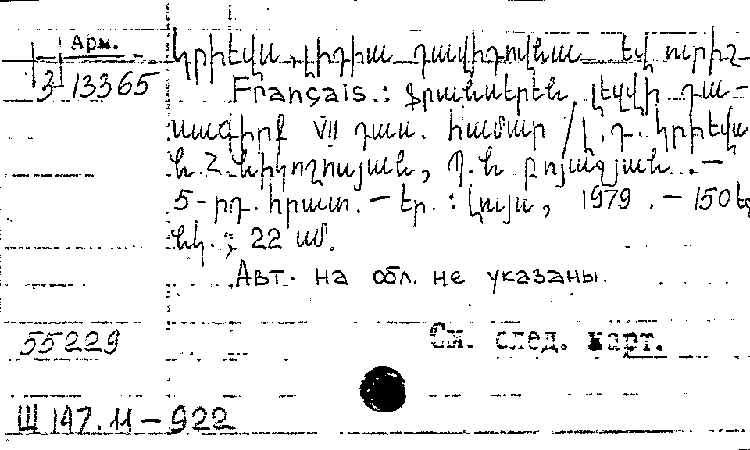 Арм.
3 13365
Կրիեվա, Լիդիա Դավիդովնա եվ ուրիշ-
Français.: Ֆրանսերեն լեզվի դա-
սագիրք VII դաս. համար / Լ. Դ. Կրիեվա
Ն. Հ. Նիկողոսյան, Պ. Ն.
5-րդ. հրատ. – Եր. : Լույս, 1979. – 150 էջ
նկ.; 22 սմ.
Авт. на обл. не указаны.
55229
См. след. карт.
Ш 147.11 – 922